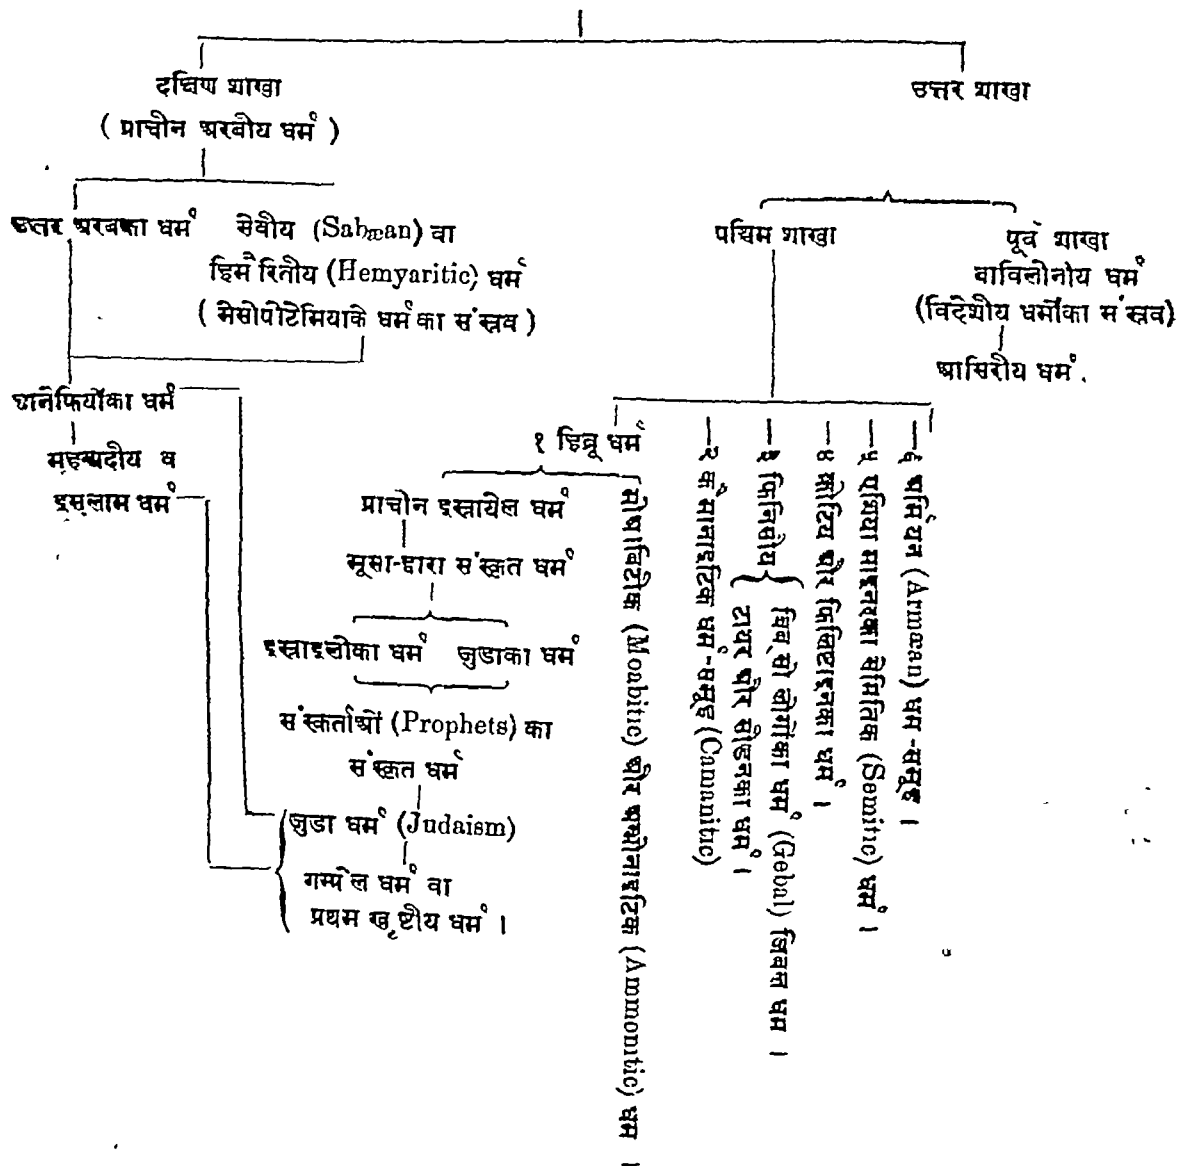 दक्षिण शाखा
( प्राचीन अरबीय धर्म )
उत्तर शाखा
उत्तर अरबका धर्म
सेवीय (Sabæan) वा
हिमैरितीय (Hemyaritic) धर्म
( मेसोपोटेमियाके धर्मका संस्रव )
पश्चिम शाखा
पूर्व शाखा
वाविलोनीय धर्म
(विदेशीय धर्मोंका संस्रव)
आसिरीय धर्म.
हानेफियोंका धर्म
महम्मदीय व
इसलाम धर्म
१ हिब्रू धर्म
प्राचीन इस्रायेल धर्म
मूसा-द्वारा संस्कृत धर्म
इस्राइलीका धर्म
जुडाका धर्म
संस्कर्ताओं (Prophets) का
संस्कृत धर्म
जुडा धर्म (Judaism)
गस्पेल धर्म वा
प्रथम खृष्टीय धर्म ।
मोयाबिटीक (Moabitic) और अम्मोनाइटिक (Ammonitic) धर्म ।
—२ कैसानाइटिक धर्म-समूह (Cananitic)
—३ फिनिसीय
टायर और सीडनका धर्म ।
गिब्सी लोगोंका धर्म (Gebal) गिबल धर्म ।
—४ केटिय और फिलिष्टाइनका धर्म ।
—५ एशिया माइनरका सेमितिक (Semitic) धर्म ।
—६ अर्मियन (Armæan) धर्म-समूह ।